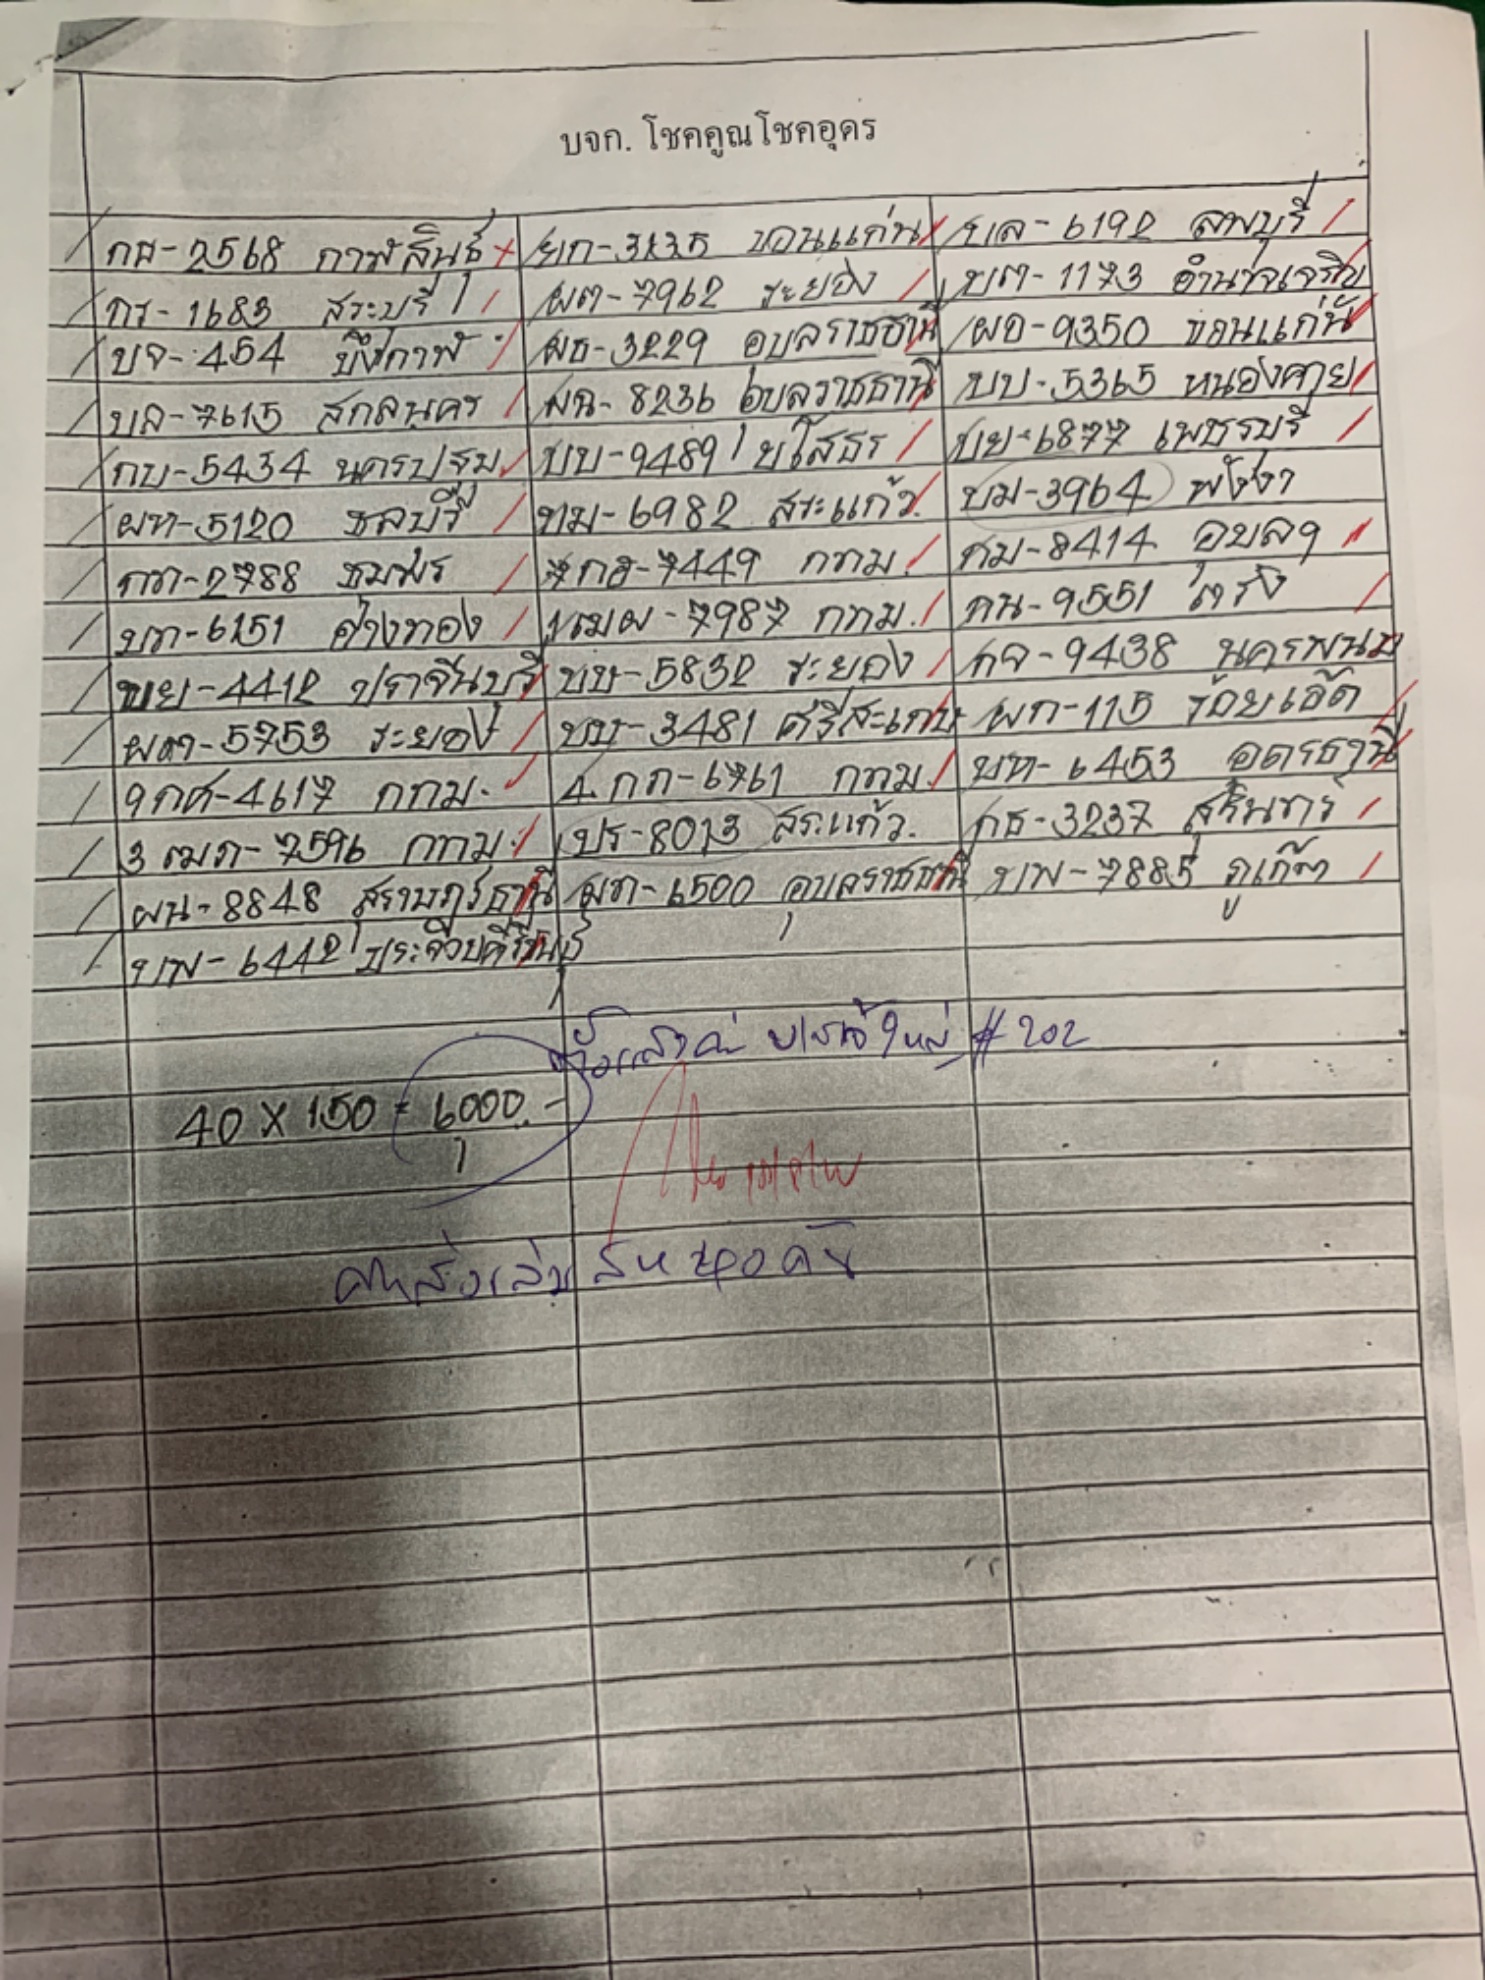 บจก. โชคคูณโชคอุดร
กธ-2568 กาฬสินธุ์ ยก-3235 ขอนแก่น บล-6192 ลพบุรี
กร-1683 สระบุรี ผต-7962 ระยอง บต-1173 อำนาจเจริญ
บจ-454 บึงกาฬ ผธ-3229 อุบลราชธานี ผอ-9350 ขอนแก่น
บล-7615 สกลนคร ผฉ-8236 อุบลราชธานี บบ-5365 หนองคาย
กบ-5434 นครปฐม บบ-9489 ยโสธร ขย-6877 เพชรบุรี
ผท-5120 ชลบุรี ทม-6982 สระแก้ว บม-3964 พังงา
กก-2788 ชุมพร 7 กฮ-7449 กทม. กม-8414 อุบลฯ
บก-6151 อ่างทอง 1 ฒผ-7987 กทม. กน-9551 ตรัง
ขย-4412 ปราจีนบุรี ขบ-5832 ระยอง กจ-9438 นครพนม
ผต-5753 ระยอง บบ-3481 ศรีสะเกษ ผก-115 ร้อยเอ็ด
9 กศ-4617 กทม. 4 กภ-6761 กทม. บท-6453 อุดรธานี
3 ฒภ-7596 กทม. ปร-8013 สระแก้ว. กธ-3237 สุรินทร์
ผน-8848 สุราษฎร์ธานี ผก-6500 อุบลราชธานี ขพ-7885 ภูเก็ต
บพ-6442 ประจวบคีรีขันธ์
# 202
40 X 150 = 6000.-